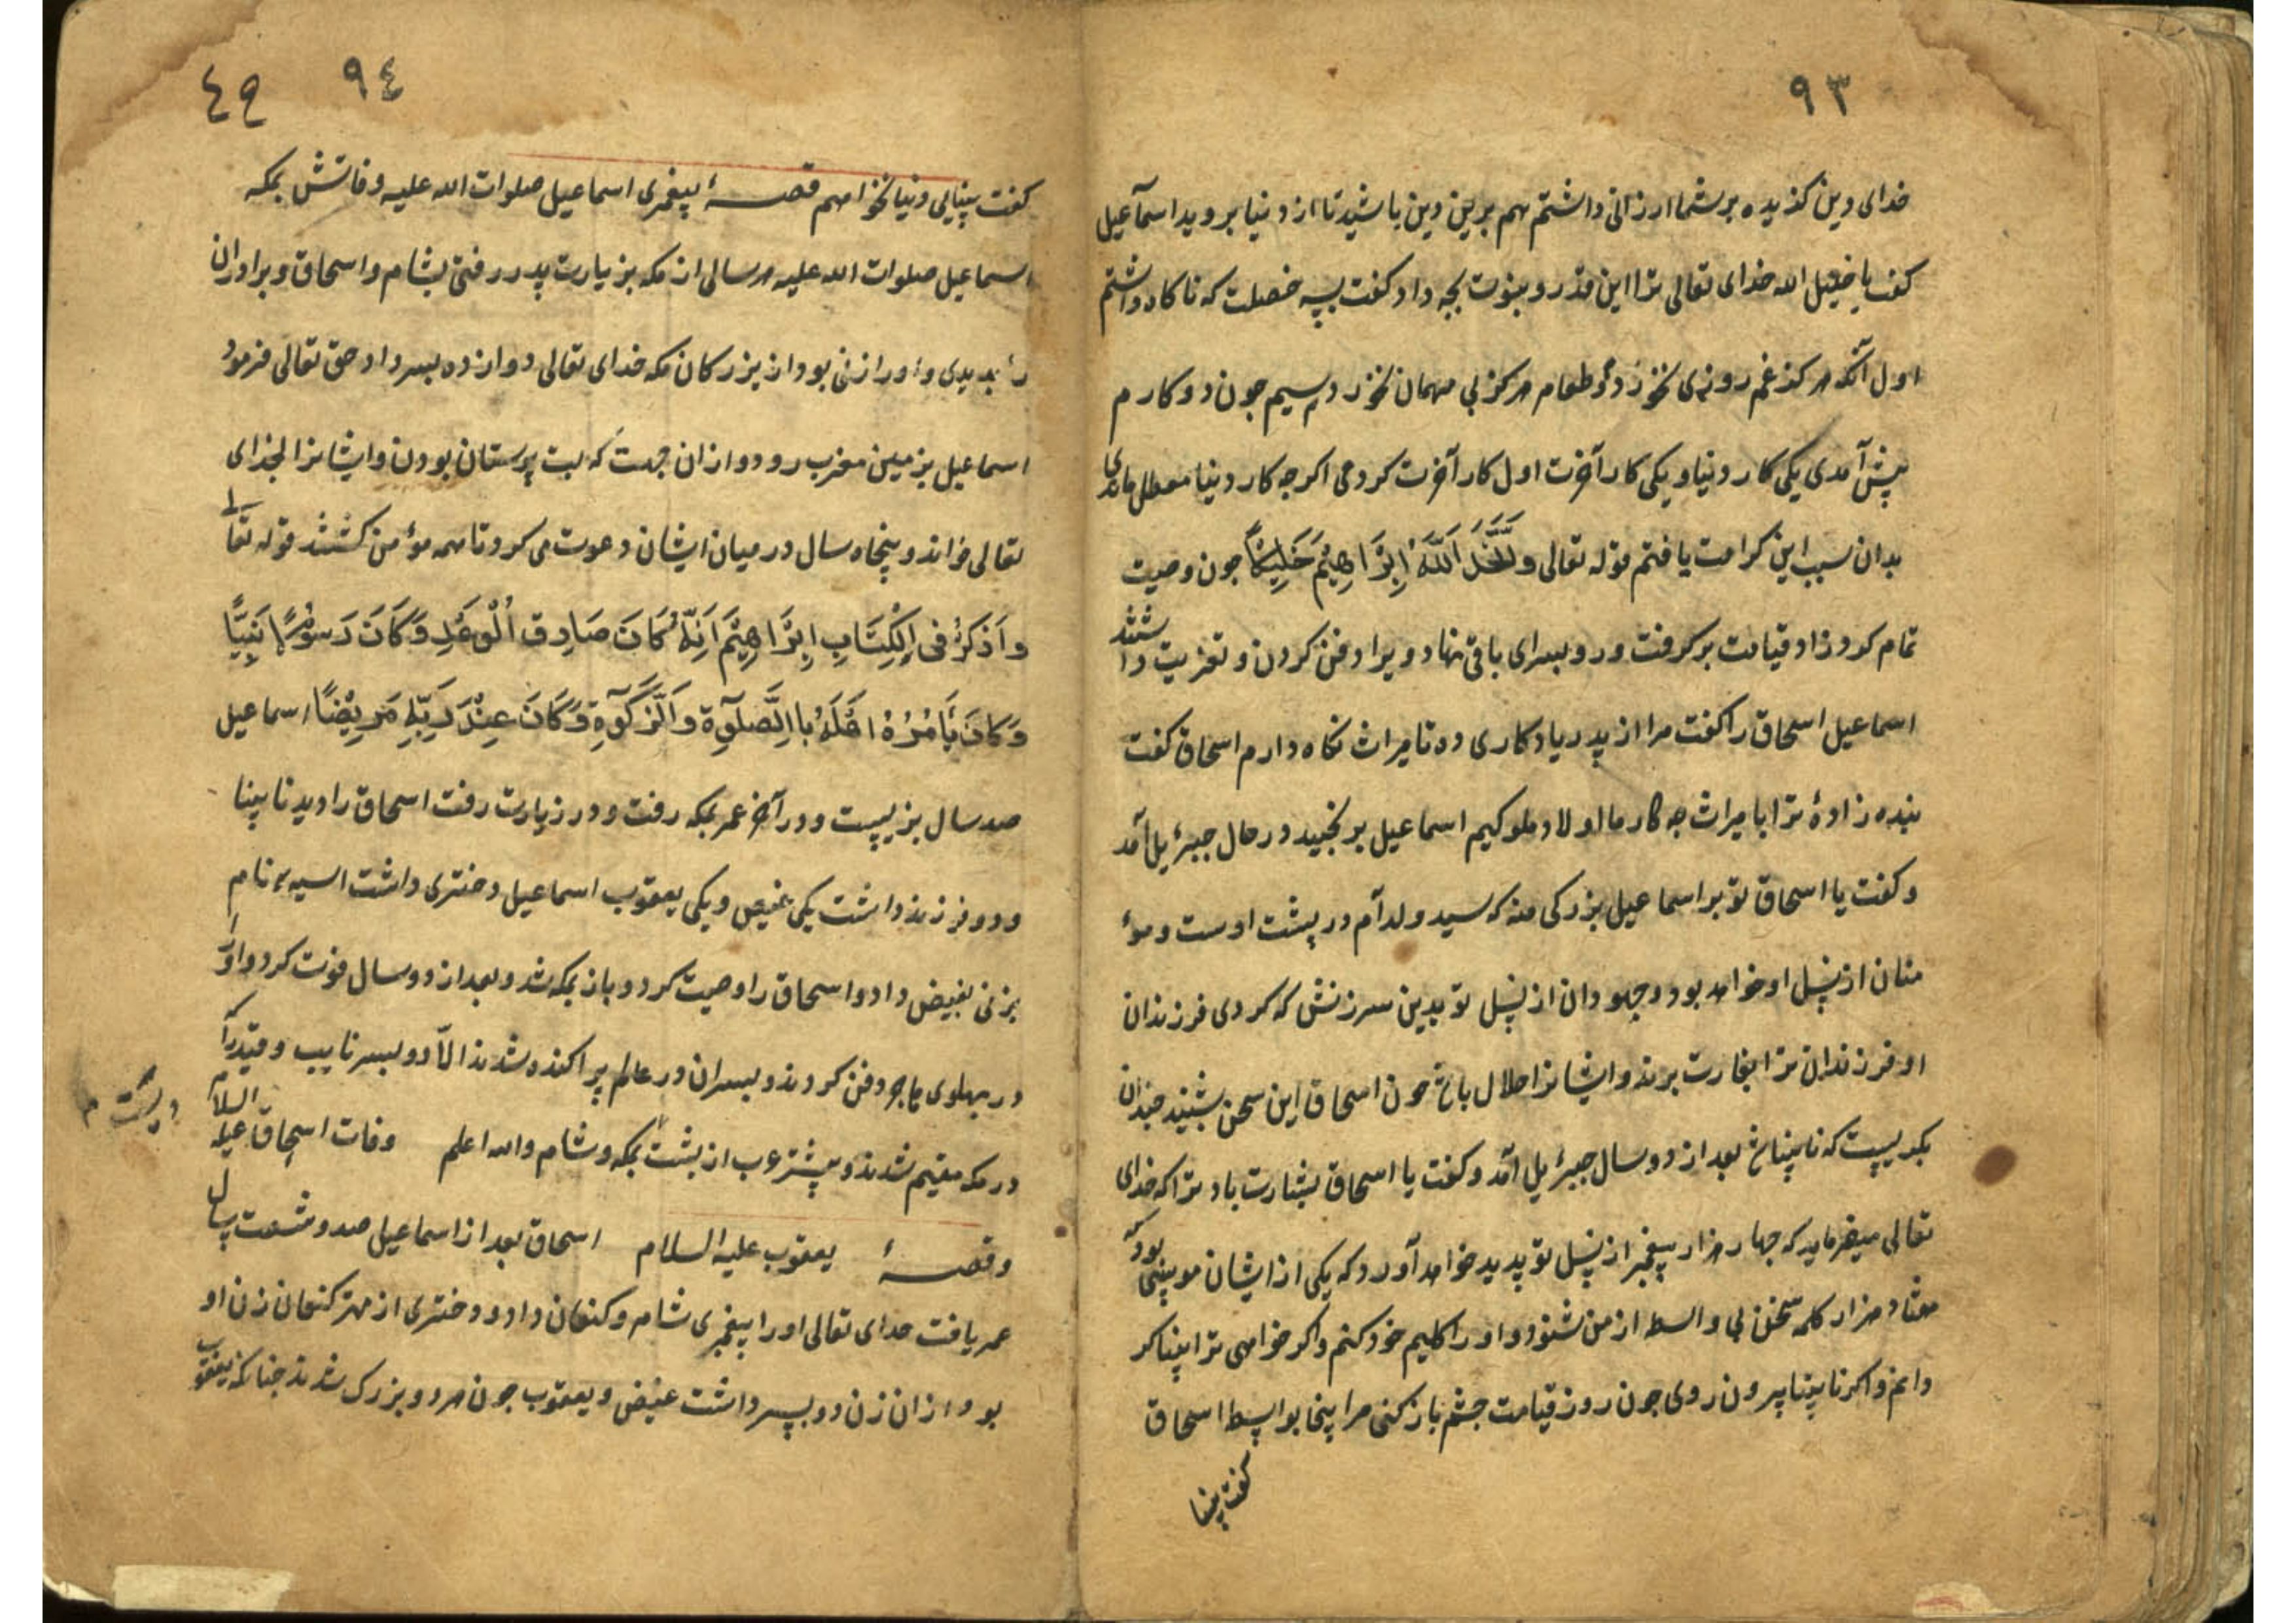 ٩٣
خدای دین کزیده بر شما ارزانی داشتم هم برین دین باشید تا از دنیا بروید اسماعیل
کفت یا خلیل الله خدای تعالی ترا این قدر و نبوت بچه داد کفت بسه خصلت که ناکاه داشتم
اول آنکه هرکز غم روزی نخوردم و طعام هرکز بی مهمان نخوردم سیم جون دو کارم
پیش آمدی یکی کار دنیا و یکی کار آخرت اول کار آخرت کردمی اکرجه کار دنیا معطل ماندی
بدان سبب این کرامت یافتم قوله تعالی وَاتَّخَذَ اَللَّهُ اِبْرَاهِیْمَ خَلِیْلًا جون وصیت
تمام کرد زاد قیامت برکرفت و رو بسرای باقی نهاد ویرا دفن کردن و تعزیت داشتند
اسماعیل اسحاق را کفت مرا از پدر یادکاری ده تا میراث نکاه دارم اسحاق کفت
بنده زادهٔ ترا با میراث جه کار ما اولاد ملوکیم اسماعیل برنجید درحال جبرئیل آمد
و کفت یا اسحاق تو بر اسماعیل بزرکی منه که سید ولد آدم در پشت اوست و مؤ
منان از نسل او خواهد بود و جهودان از نسل تو بدین سرزنش که کردی فرزندان
او فرزندان ترا بغارت برند و ایشانرا حلال باشد جون اسحاق این سخن بشنید جندان
بکریست که نابینا شد بعد از دو سال جبرئیل آمد و کفت یا اسحاق بشارت باد ترا که خدای
تعالی میفرماید که جهار هزار پیغمبر از نسل تو پدید خواهد آورد که یکی از ایشان موسی بود که
هفتاد هزار کلمه سخن بی واسطه از من شنود و او را کلیم خود کنم و اکر خواهی ترا بینا کر
دانم و اکر نابینا بیرون روی جون روز قیامت جشم باز کنی مرا بینی بواسط اسحاق
کفت بینا
٩٤ ٤٩
کفت بینایی دنیا نخواهم قصهٔ پیغمبری اسماعیل صلوات الله علیه وفاتش بمکه
اسماعیل صلوات الله علیه هر سالی از مکه بزیارت پدر رفتی بشام و اسحاق و برادران
را بدیدی و او را زنی بود از بزرکان مکه خدای تعالی دوازده بسر داد حق تعالی فرمود
اسماعیل بزمین مغرب رود و از ان جهت که بت پرستان بودن و ایشانرا بخدای
تعالی خواند و پنجاه سال در میان ایشان دعوت می کرد تا همه مؤمن کشتند قوله تعالی
واَذْکُرْ فی اِلْکِتَابِ اِبْرَاهِیْمَ اَنَّهُ کَانَ صَادِق اُلْوَعْدِ وَکَانَ رَسُوْلًا نَبِیَّا
وَکَانَ یَأمُرُهُ اَهْلَهُ بِااِلصَّلوٰةِ وَالَزَّکوٰةِ وَکَانَ عِنْدَ رَبِّهِ مَرِیْضًا اسماعیل
صد سال بزیست و در آخر عمر بمکه رفت و در زیارت رفت اسحاق را دید نابینا
و دو فرزند داشت یکی عیص و یکی یعقوب اسماعیل دختری داشت اسیه نام
بزنی بعیص داد و اسحاق را وصیت کرد و باز بمکه شد و بعد از دو سال فوت کرد و او را
در پهلوی هاجر دفن کردند و بسران در عالم پراکنده شدند الّا دو بسر نایب و قیدر که
در مکه مقیم شدند و بیشتر عرب از پشت بمکه و شام والله اعلم وفات اسحاق علیه السلام
و قصهٔ یعقوب علیه السلام اسحاق بعد از اسماعیل صد و شصت سال
عمر یافت خدای تعالی او را پیغمبری شام و کنعان داد و دختری از مهتر کنعان زن او
بود از ان زن دو بسر داشت عیص و یعقوب جون هر دو بزرک شدند جنانکه یعقوب